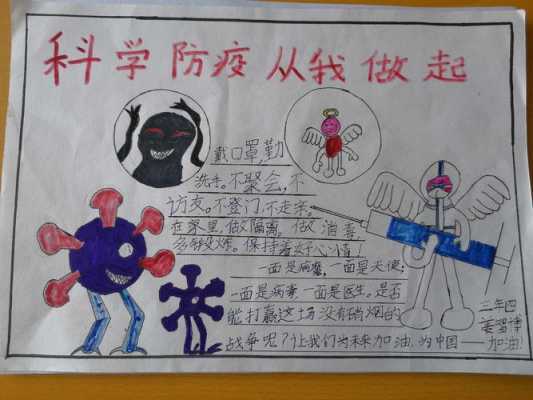 科学防疫从我做起
戴口罩,勤
洗手。不聚会,不
访友。不登门,不走亲。
在家里,做隔离。做消毒,
多锻炼。保持着好心情!
一面是病魔,一面是天使;
一面是病毒,一面是医生。是否
能打赢这场没有硝烟的
战争呢?让我们为未来加油,为中国——加油!
三年四